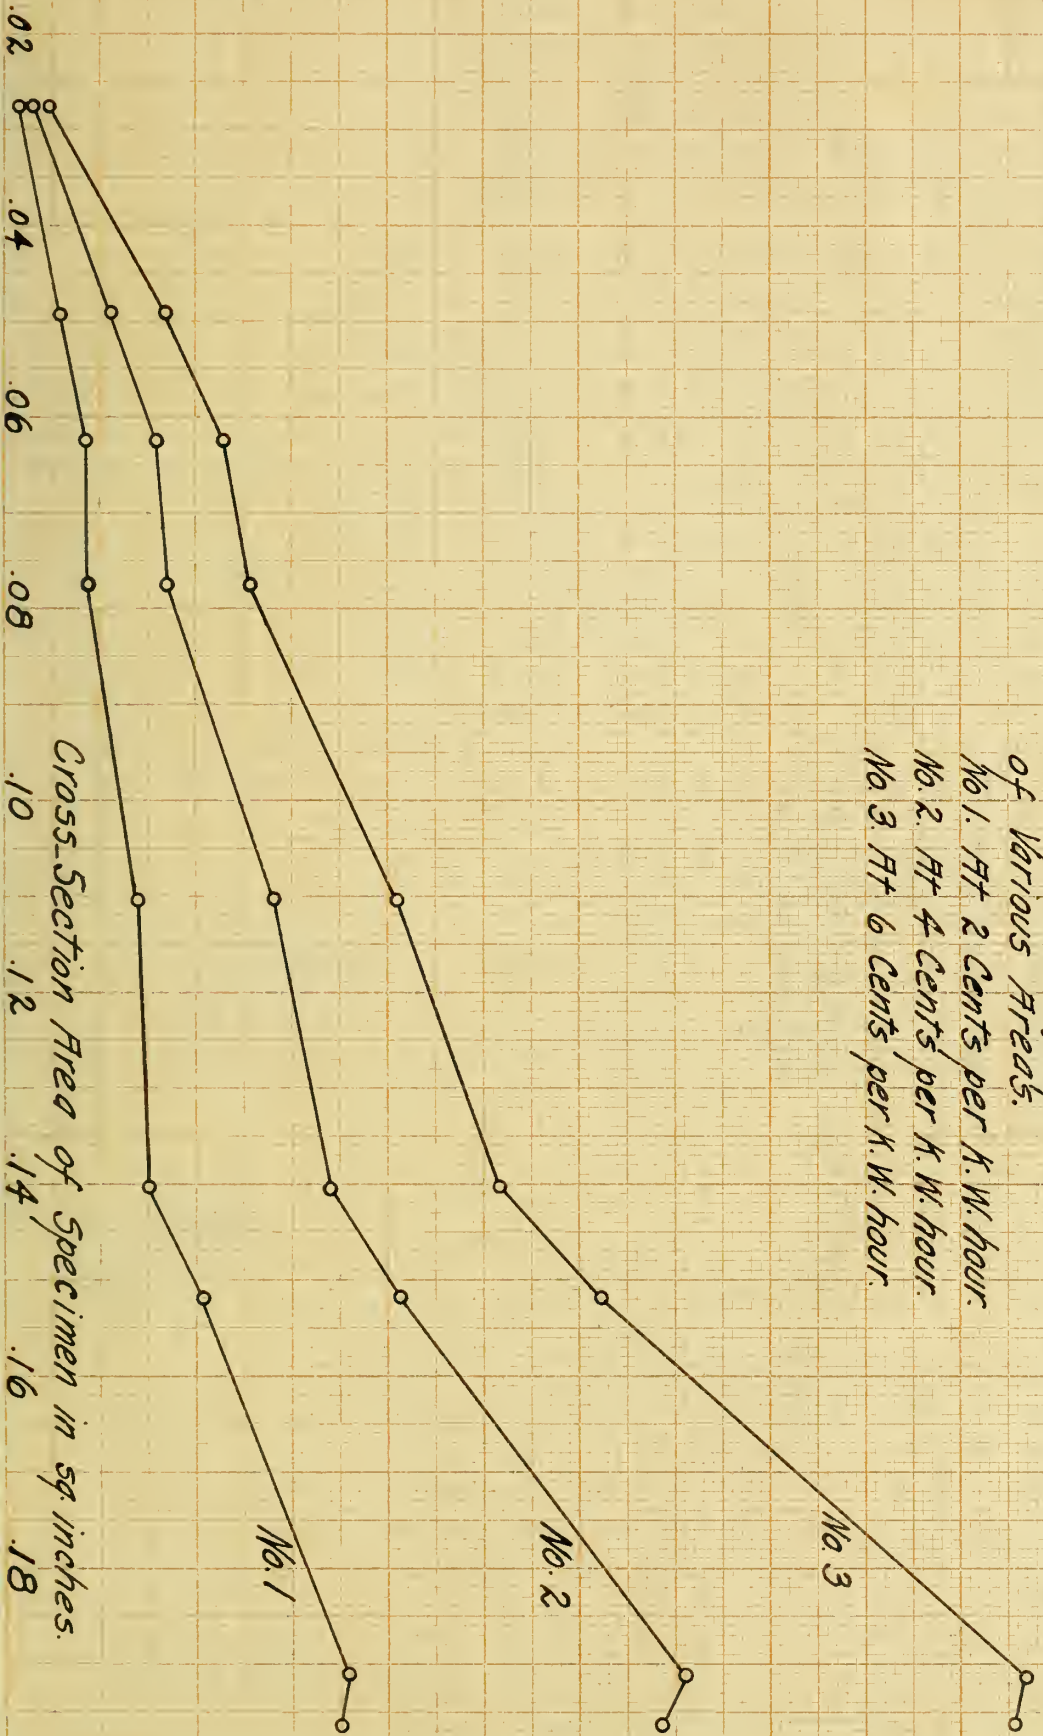 of Various Areas.
No 1. At 2 Cents per K.W. hour.
No. 2. At 4 Cents per K.W. hour.
No. 3. At 6 Cents per K.W. hour.
No. 3
No. 2
No. 1
Cross-Section Area of Specimen in sq. inches.
.02 .04 .06 .08 .10 .12 .14 .16 .18